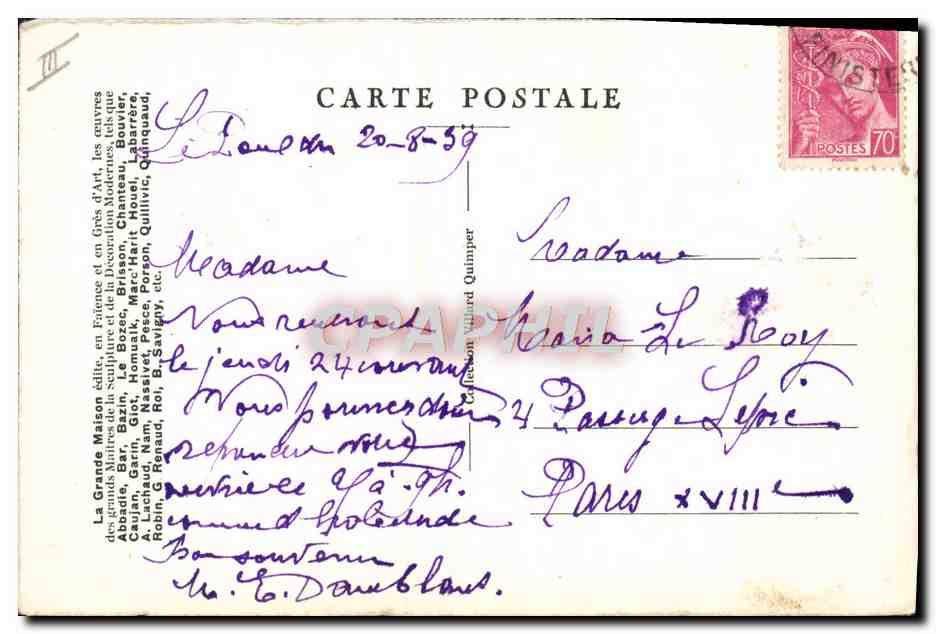 III
CARTE POSTALE
Le Pouldu 20-8-39
MINISTER
POSTES 70c
Madame
Nous rentrons
le jeudi 24 courant
Vous pouvez donc
reprendre votre
service le 27 à 9h.
comme d'habitude
Bon souvenir
M. E. Daublans.
Madame
Maria Le Roy
4 Passage Lepic
Paris XVIIIe
Collection Villard Quimper
La Grande Maison édite, en Faïence et en Grès d'Art, les œuvres
des grands Maîtres de la Sculpture et de la Décoration Modernes, tels que
Abbadie, Bar, Bazin, Le Bozec, Brisson, Chanteau, Bouvier,
Caujan, Garin, Giot, Homualk, Marc'Harit Houel, Labarrère,
A. Lachaud, Nam, Nassivet, Pesce, Porson, Quillivic, Quinquaud,
Robin, G. Renaud, Rol, B. Savigny, etc.
CPAPHIL